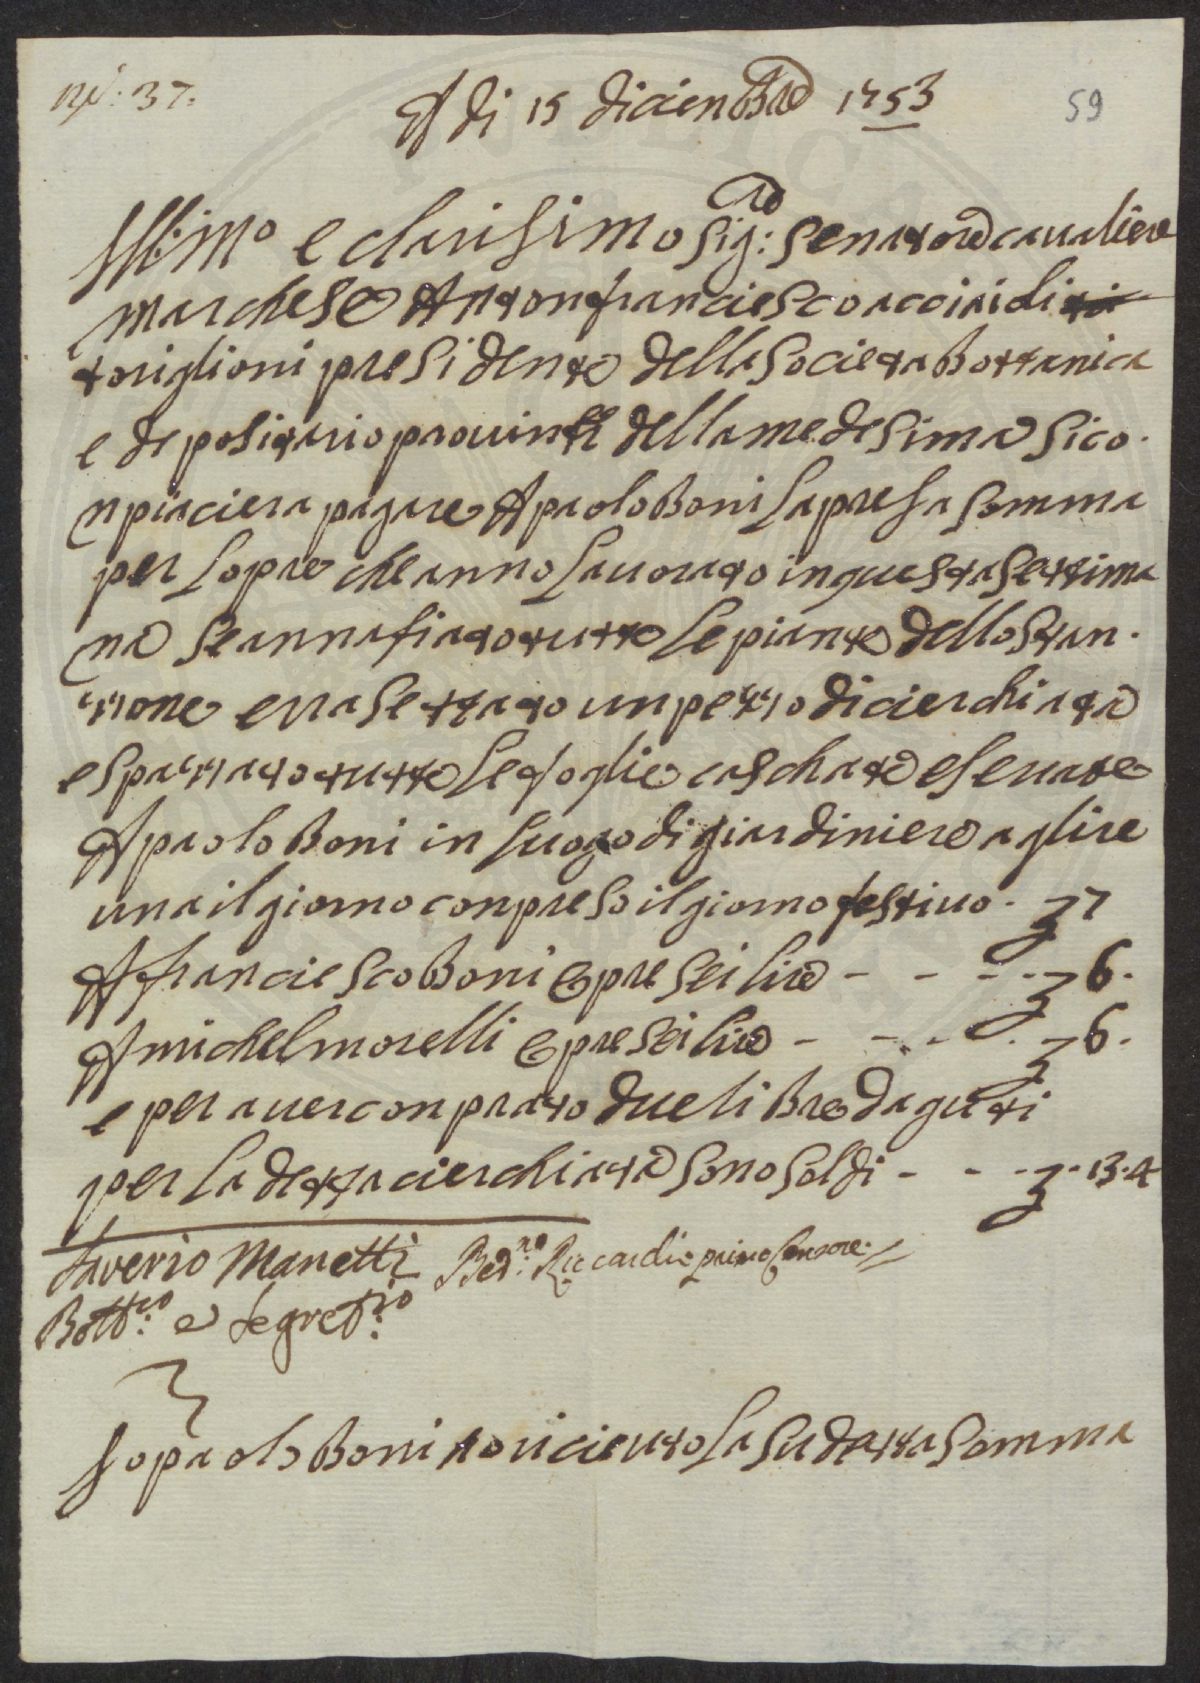 N.º: 37.
A di 15 diciembre 1753
59
Ill:mo e clarisimo Sig:re Senatore cavaliere
marchese Antonfranciesco acciaioli
toriglioni presidente della Societa Bottanica
e depositario provin.le della medesima Sico.
npiaciera pagare A paolo Boni la presa Somma
per lopre che anno lavorato in questa Settima
na Se annafiato tutte le piante dello Stan.
zzone e rasettato un pezzo di cierchiata
e spazzato tutte le foglie caschate e levate
A paolo Boni in luogo di giardiniere a glire
una il giorno conpreso il giorno festivo. £ 7
A franciesco Boni opre sei lire - - - - £ 6.
A michel morelli opre sei lire - - - - £ 6.
e per aver conprato due libre daguti
per la detta cierchiata sono soldi - - - £ - 13.4
Saverio Manetti Ber.no Riccardi primo Censore.
Bott.co e Segret.rio
Io paolo Boni o riciewto la sudetta Somma